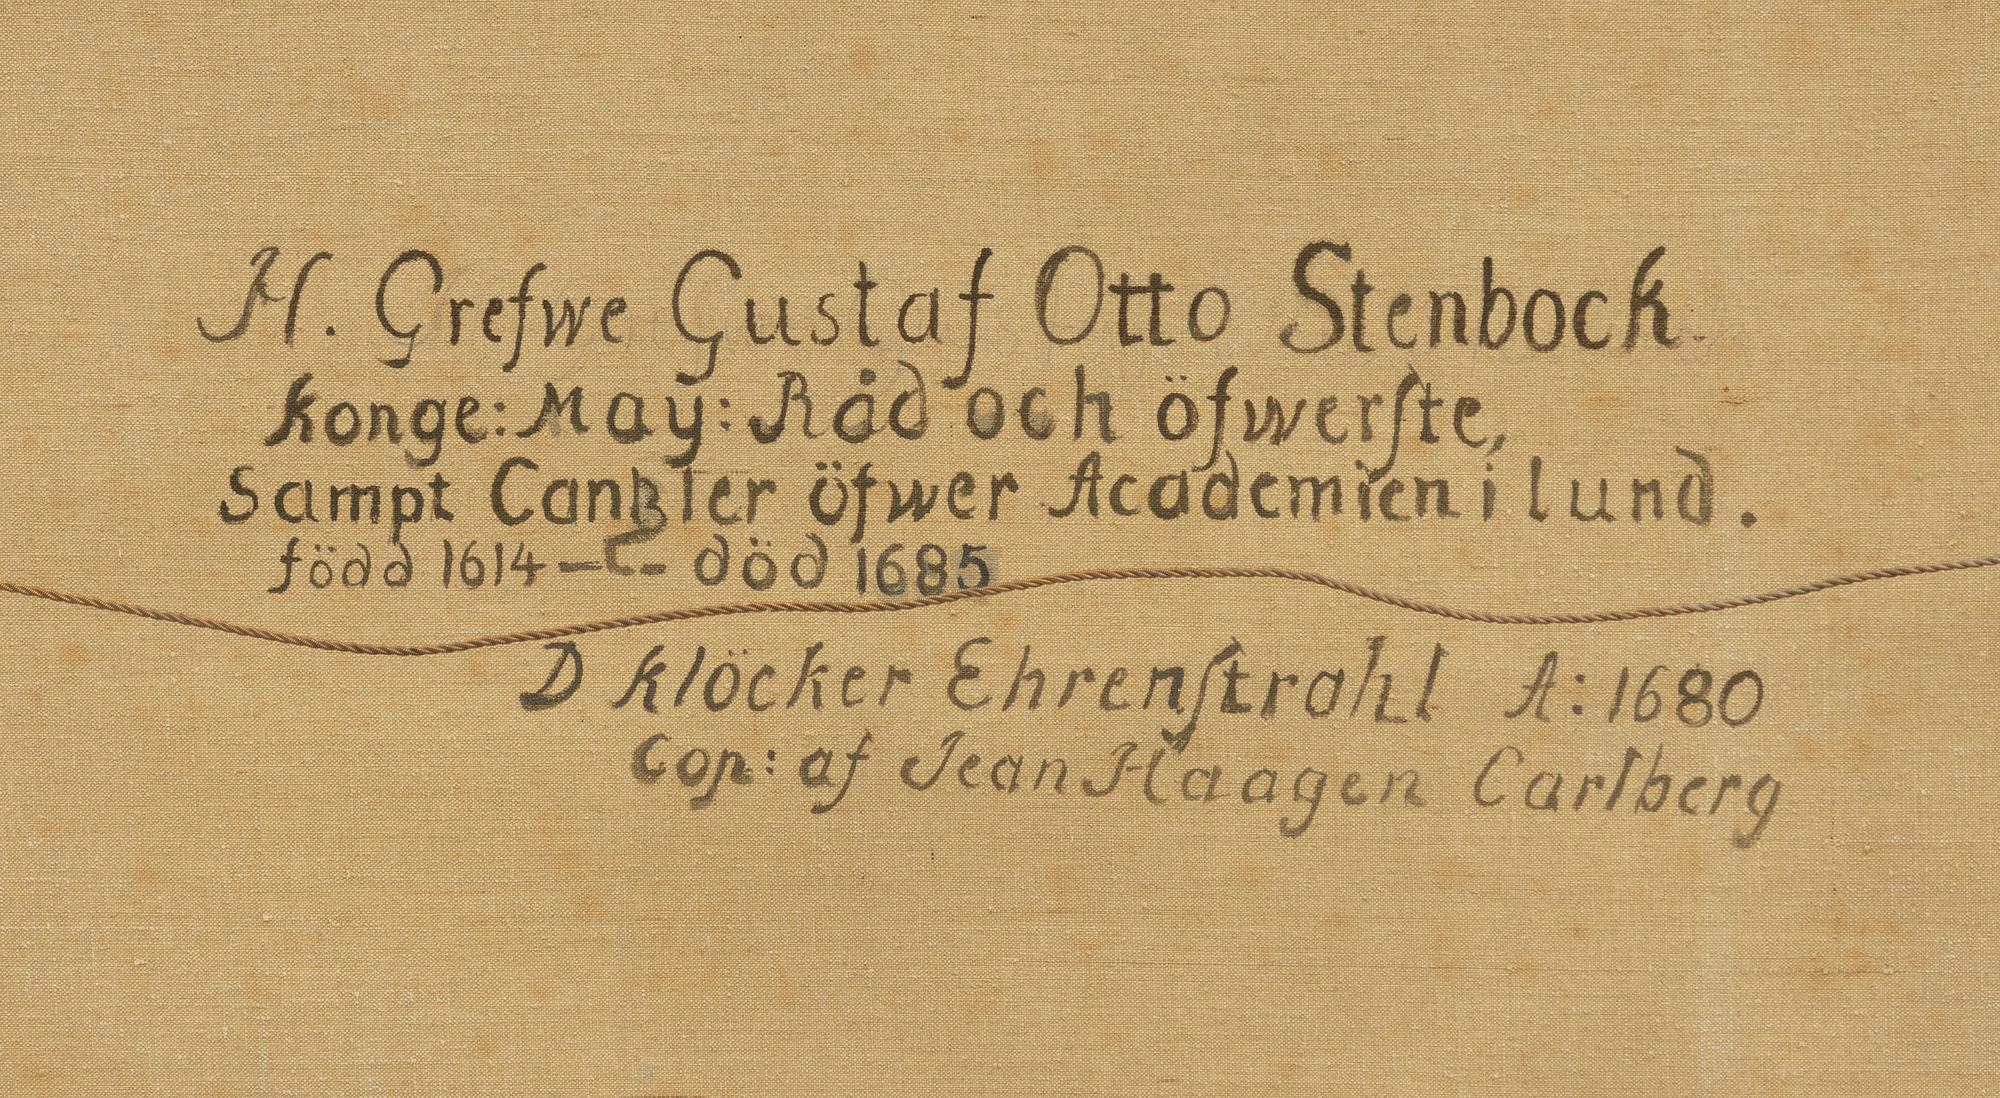 H. Grefwe Gustaf Otto Stenbock.
Konge: May: Råd och öfwerſte,
Sampt Cantzler öfwer Academien i lund.
född 1614 — död 1685
D klöcker Ehrenſtrahl A: 1680
Cop: af Jean Haagen Carlberg